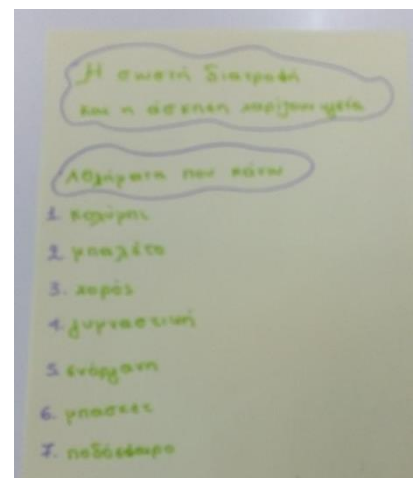 Η σωστή διατροφή
και η άσκηση χαρίζουν υγεία
Αθλήματα που κάνω
1. κολύμπι
2. μπαλέτο
3. χορός
4. γυμναστική
5. ενόργανη
6. μπάσκετ
7. ποδόσφαιρο